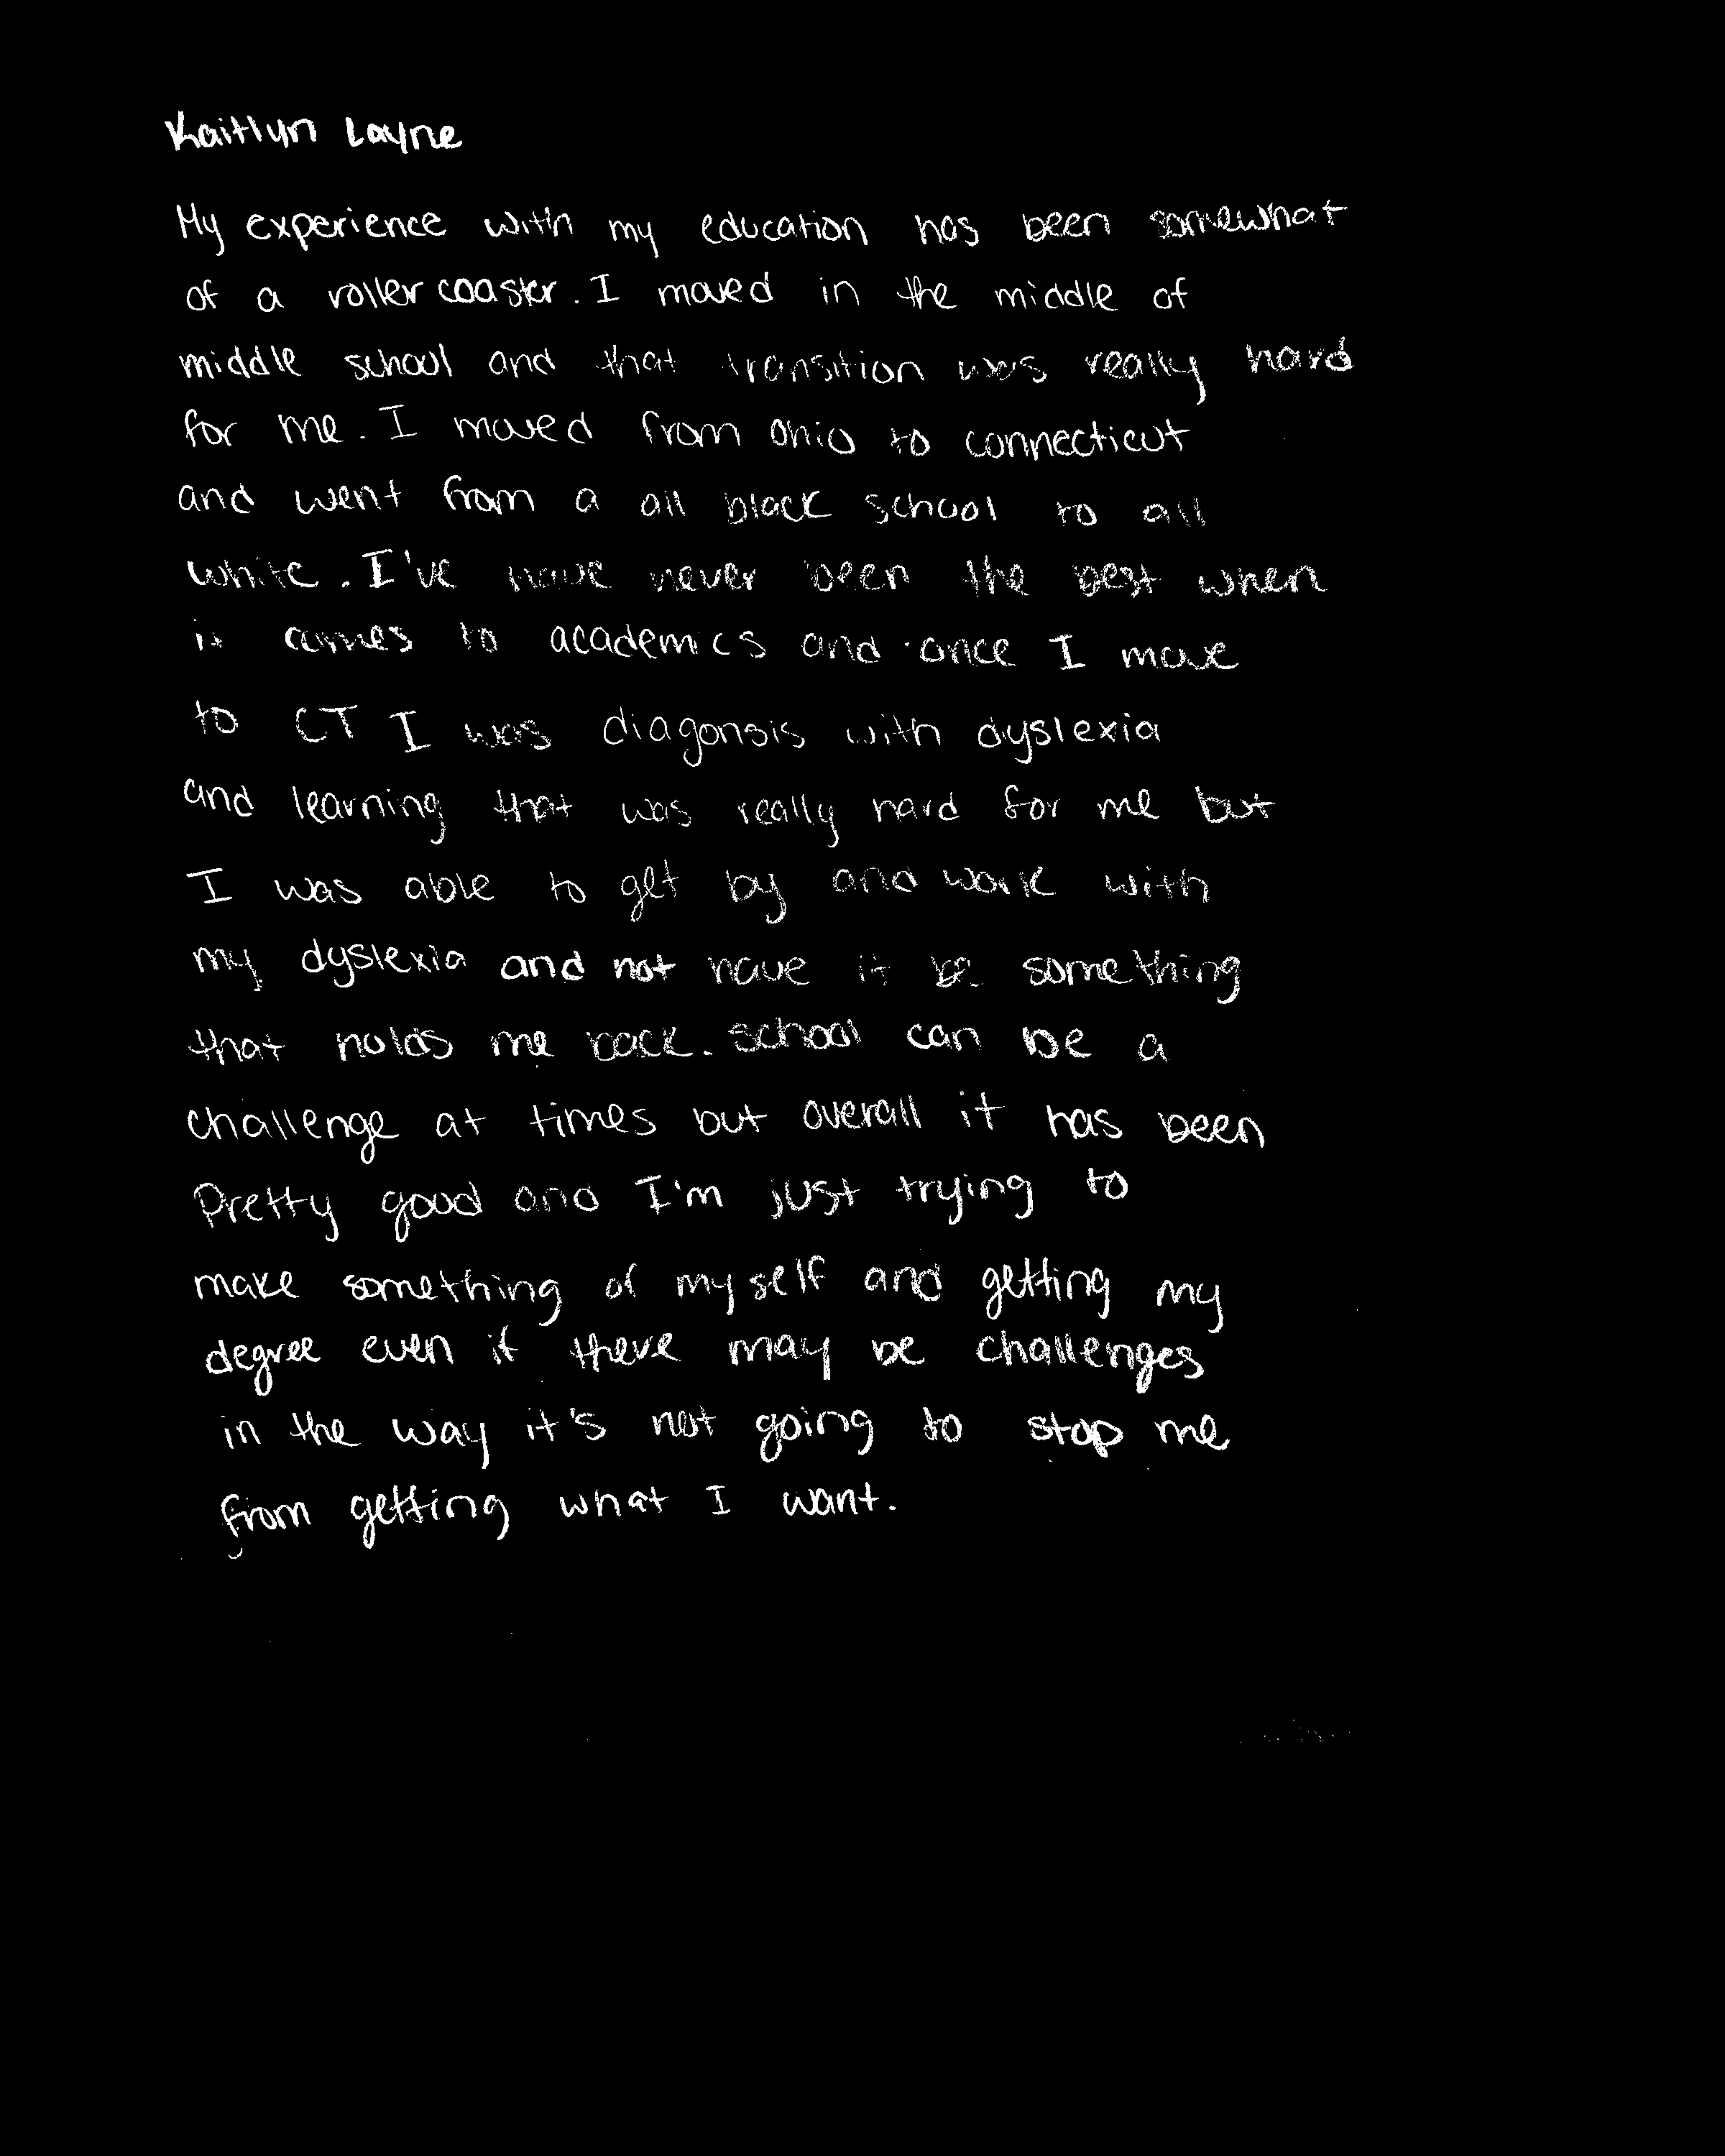 Kaitlyn Layne
My experience with my education has been somewhat
of a roller coaster. I moved in the middle of
middle school and that transition was really hard
for me. I moved from Ohio to connecticut
and went from a all black school to all
white. I've have never been the best when
it comes to academics and once I move
to CT I was diagonsis with dyslexia
and learning that was really hard for me but
I was able to get by and work with
my dyslexia and not have it be something
that holds me back. school can be a
challenge at times but overall it has been
Pretty good and I'm just trying to
make something of myself and getting my
degree even if there may be challenges
in the way it's not going to stop me
from getting what I want.